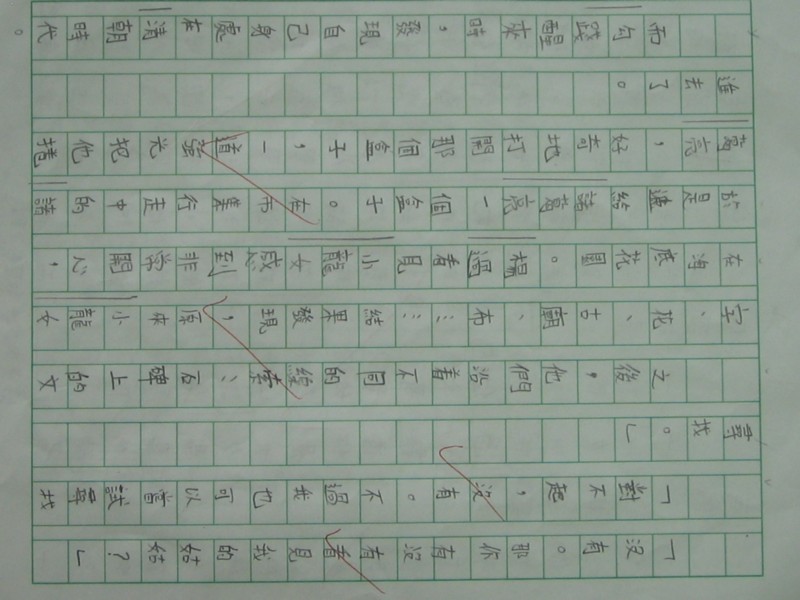 「沒有。那你有沒有看見我的姑姑？」
「對不起，沒有。不過我也可以嘗試尋找
尋找。」
之後，他們沿著不同的線索、石碑上的文
字、花、古廟、布……結果發現，原來小龍女
在海底花園。楊過看見小龍女感到非常開心，
於是送給諸葛亮一個盒子。在市集行走中的諸
葛亮，好奇地打開那個盒子，一道強光把他捲
進去了。
而勾踐醒來時，發現自己身處在清朝時代。